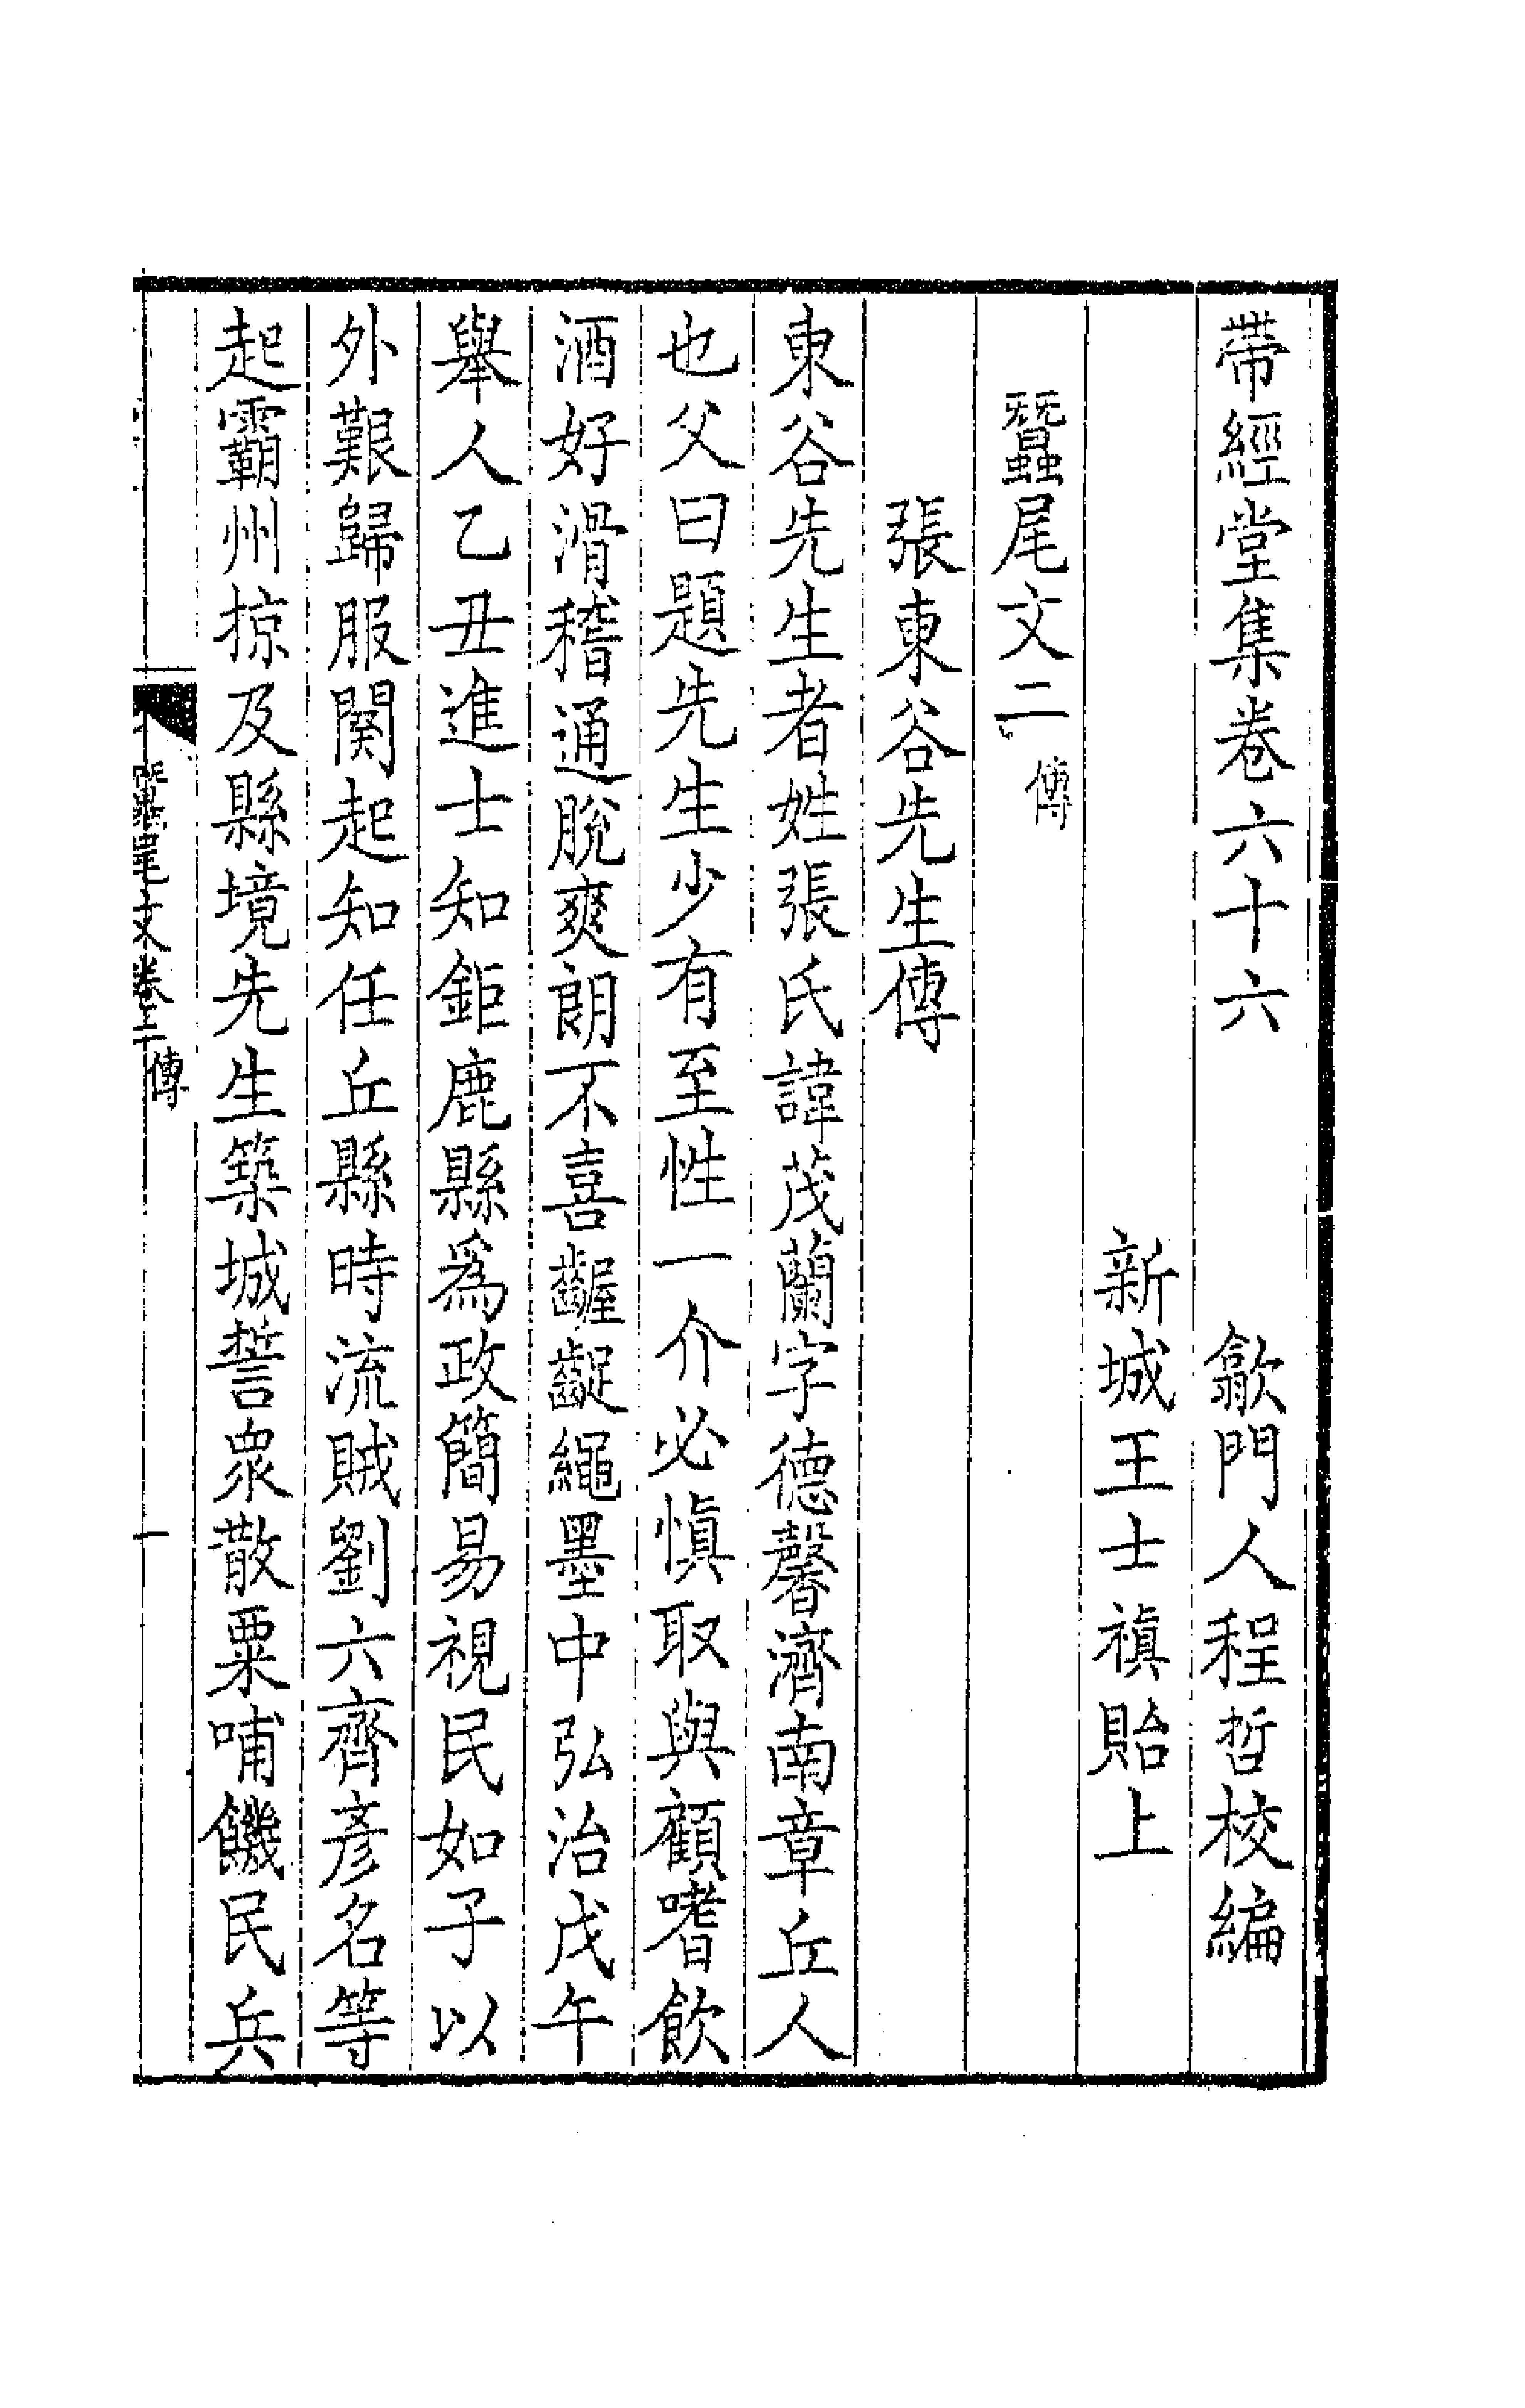 帶經堂集卷六十六　歙門人程哲校編
新城王士禛貽上
蠶尾文二傳
張東谷先生傳
東谷先生者姓張氏諱茂蘭字德馨濟南章丘人
也父曰題先生少有至性一介必慎取與顧嗜飲
酒好滑稽通脫爽朗不喜齷齪繩墨中弘治戊午
舉人乙丑進士知鉅鹿縣爲政簡易視民如子以
外艱歸服闋起知任丘縣時流賊劉六齊彥名等
起霸州掠及縣境先生築城誓衆散粟哺饑民兵
蠶尾文卷二傳　一